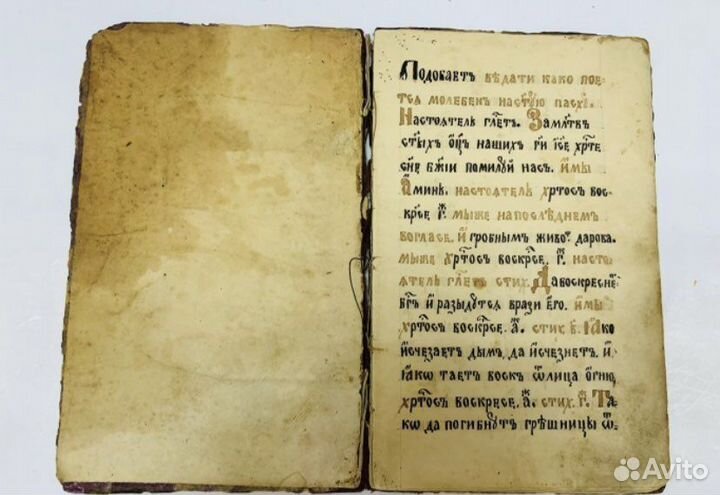 Подобаетъ вѣдати како пое
тся молебенъ настꙋю пасхꙋ.
Настоятель гл҃етъ. Замл҃твъ
ст҃ыхъ ѻц҃ъ нашихъ гі҃ і҃се хрⷭ҇те
сн҃е бж҃іи помилꙋй насъ. и҆ мы
а҆минь. настоятель хрⷭ҇тосъ вос
крⷭ҇се г҃. мы же напослѣднемъ
возгласѣ. и҆ гробнымъ живоⷮ дарова.
мы же хрⷭ҇тосъ воскрⷭ҇се. г҃. насто
ятель гл҃етъ стих. Давоскреснеⷮ
бг҃ъ и҆ разыдꙋтся врази є҆го. и҆ мы
хрⷭ҇тосъ воскрⷭ҇се. а҃. стих в҃. Ꙗ҆ко
и҆счезаетъ дымъ, да и҆счезнетъ. и҆
ꙗ҆кѡ таетъ воскъ ѿлица ѻ҆гню,
хрⷭ҇тосъ воскресе. а҃. стих. г҃. Та
кѡ да погибнꙋтъ грѣшницы ѿ
Avito